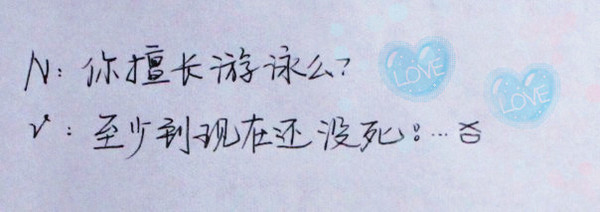 N: 你擅长游泳么?
v: 至少到现在还没死:…
LOVE
LOVE